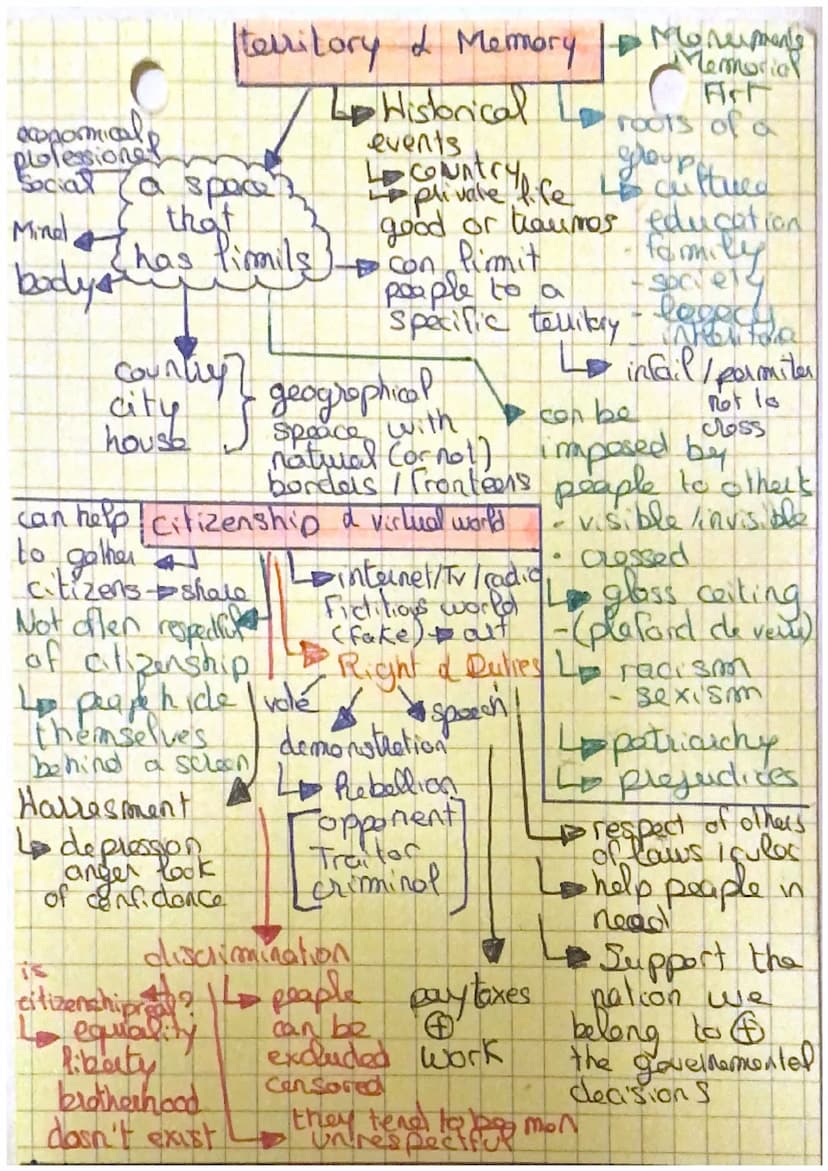 territory & Memory
Monuments
Memorial
Art
Historical
events
country
private life
good or traumas
can limit
poaple to a
specific territory
roots of a
group
cultured
education
- family
- society
- legacy
infail / permiter
not to
cross
economical
professional
Social
a space
that
has limits
Mind
body
country
city
house
geographical
speace with
natural (or not)
borders / fronteers
can be
imposed by
peaple to others
- visible / invisible
• crossed
glass ceiling
- (plafond de verre)
racism
- sexism
patriarchy
prejudices
citizenship & virtual world
can help
to gather
citizens → share
Not often respectful
of citizenship
peaple hide
themselves
behind a screen
Harresment
depression
anger lack
of confidance
internet/Tv/radio
Fictitious world
(fake) → art
Right & Duties
vote
speech
demonstration
Rebellion
opponent
Traitor
criminal
respect of others
of laws / rules
help peaple in
need
Support the
nation we
belong to +
the governemental
decisions
pay taxes
+
work
discrimination
peaple
can be
excluded
censored
they tend to be mon
unrespectful
is
citizenship real?
equality
liberty
brotherhood
dosn't exist